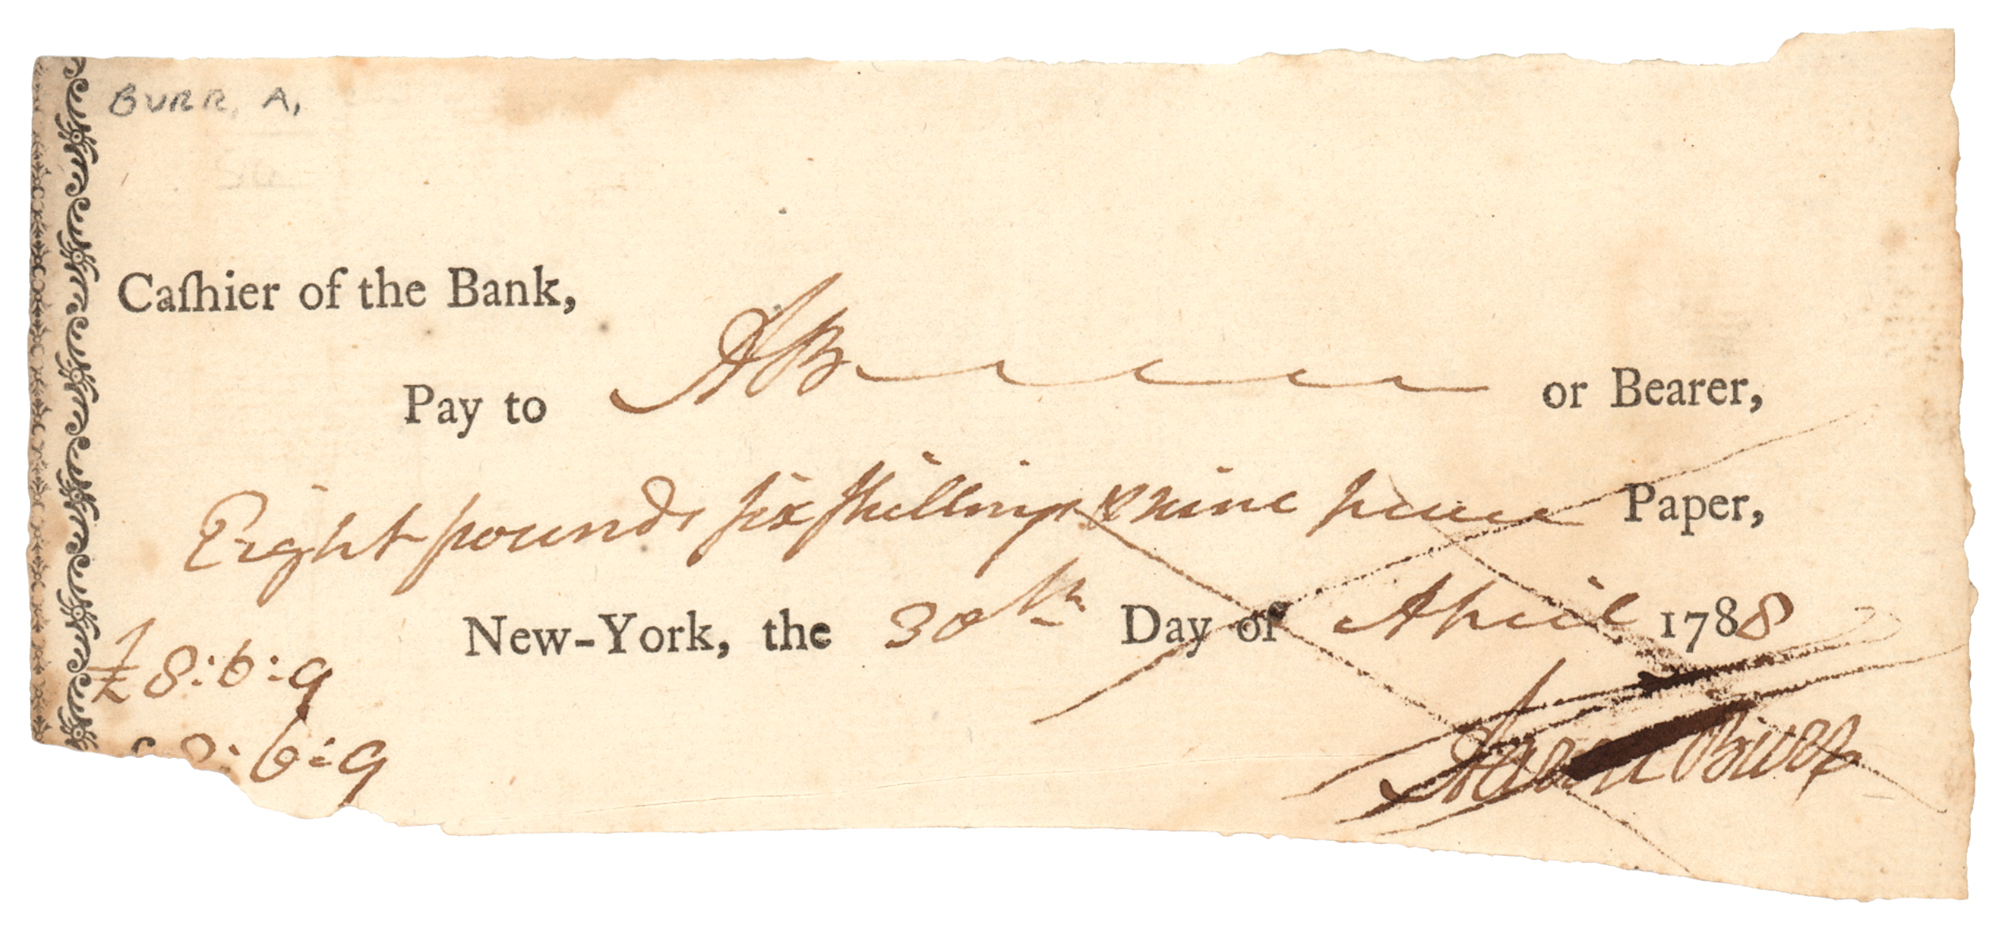 BURR, A,
Caſhier of the Bank,
Pay to AB or Bearer,
Eight pounds six shillings & nine pence Paper,
New-York, the 30th Day of April 1788
£8:6:9
Aaron Burr
8:6:9